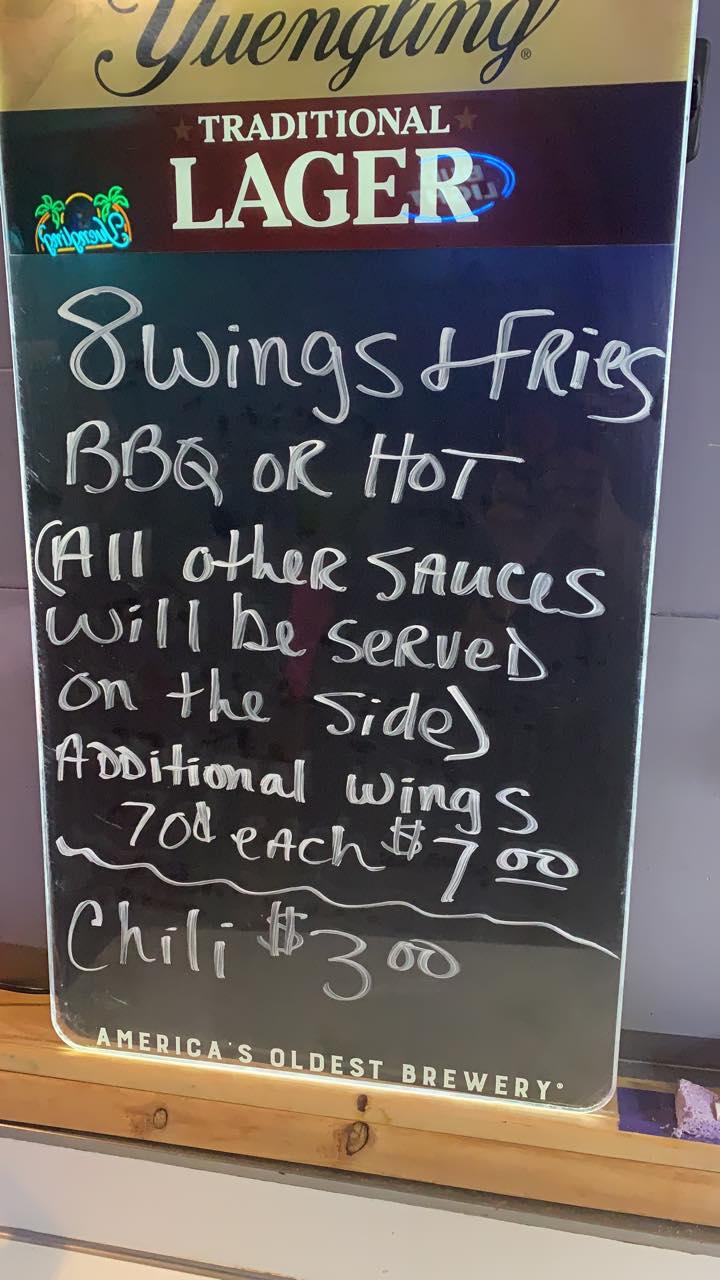 Yuengling®
TRADITIONAL
LAGER
Yuengling
8 wings & FRies
BBQ OR HOT
(All other SAUCES
will be SeRVeD
on the side)
ADDitional wings
70¢ eACH $7.00
Chili $3.00
AMERICA'S OLDEST BREWERY®